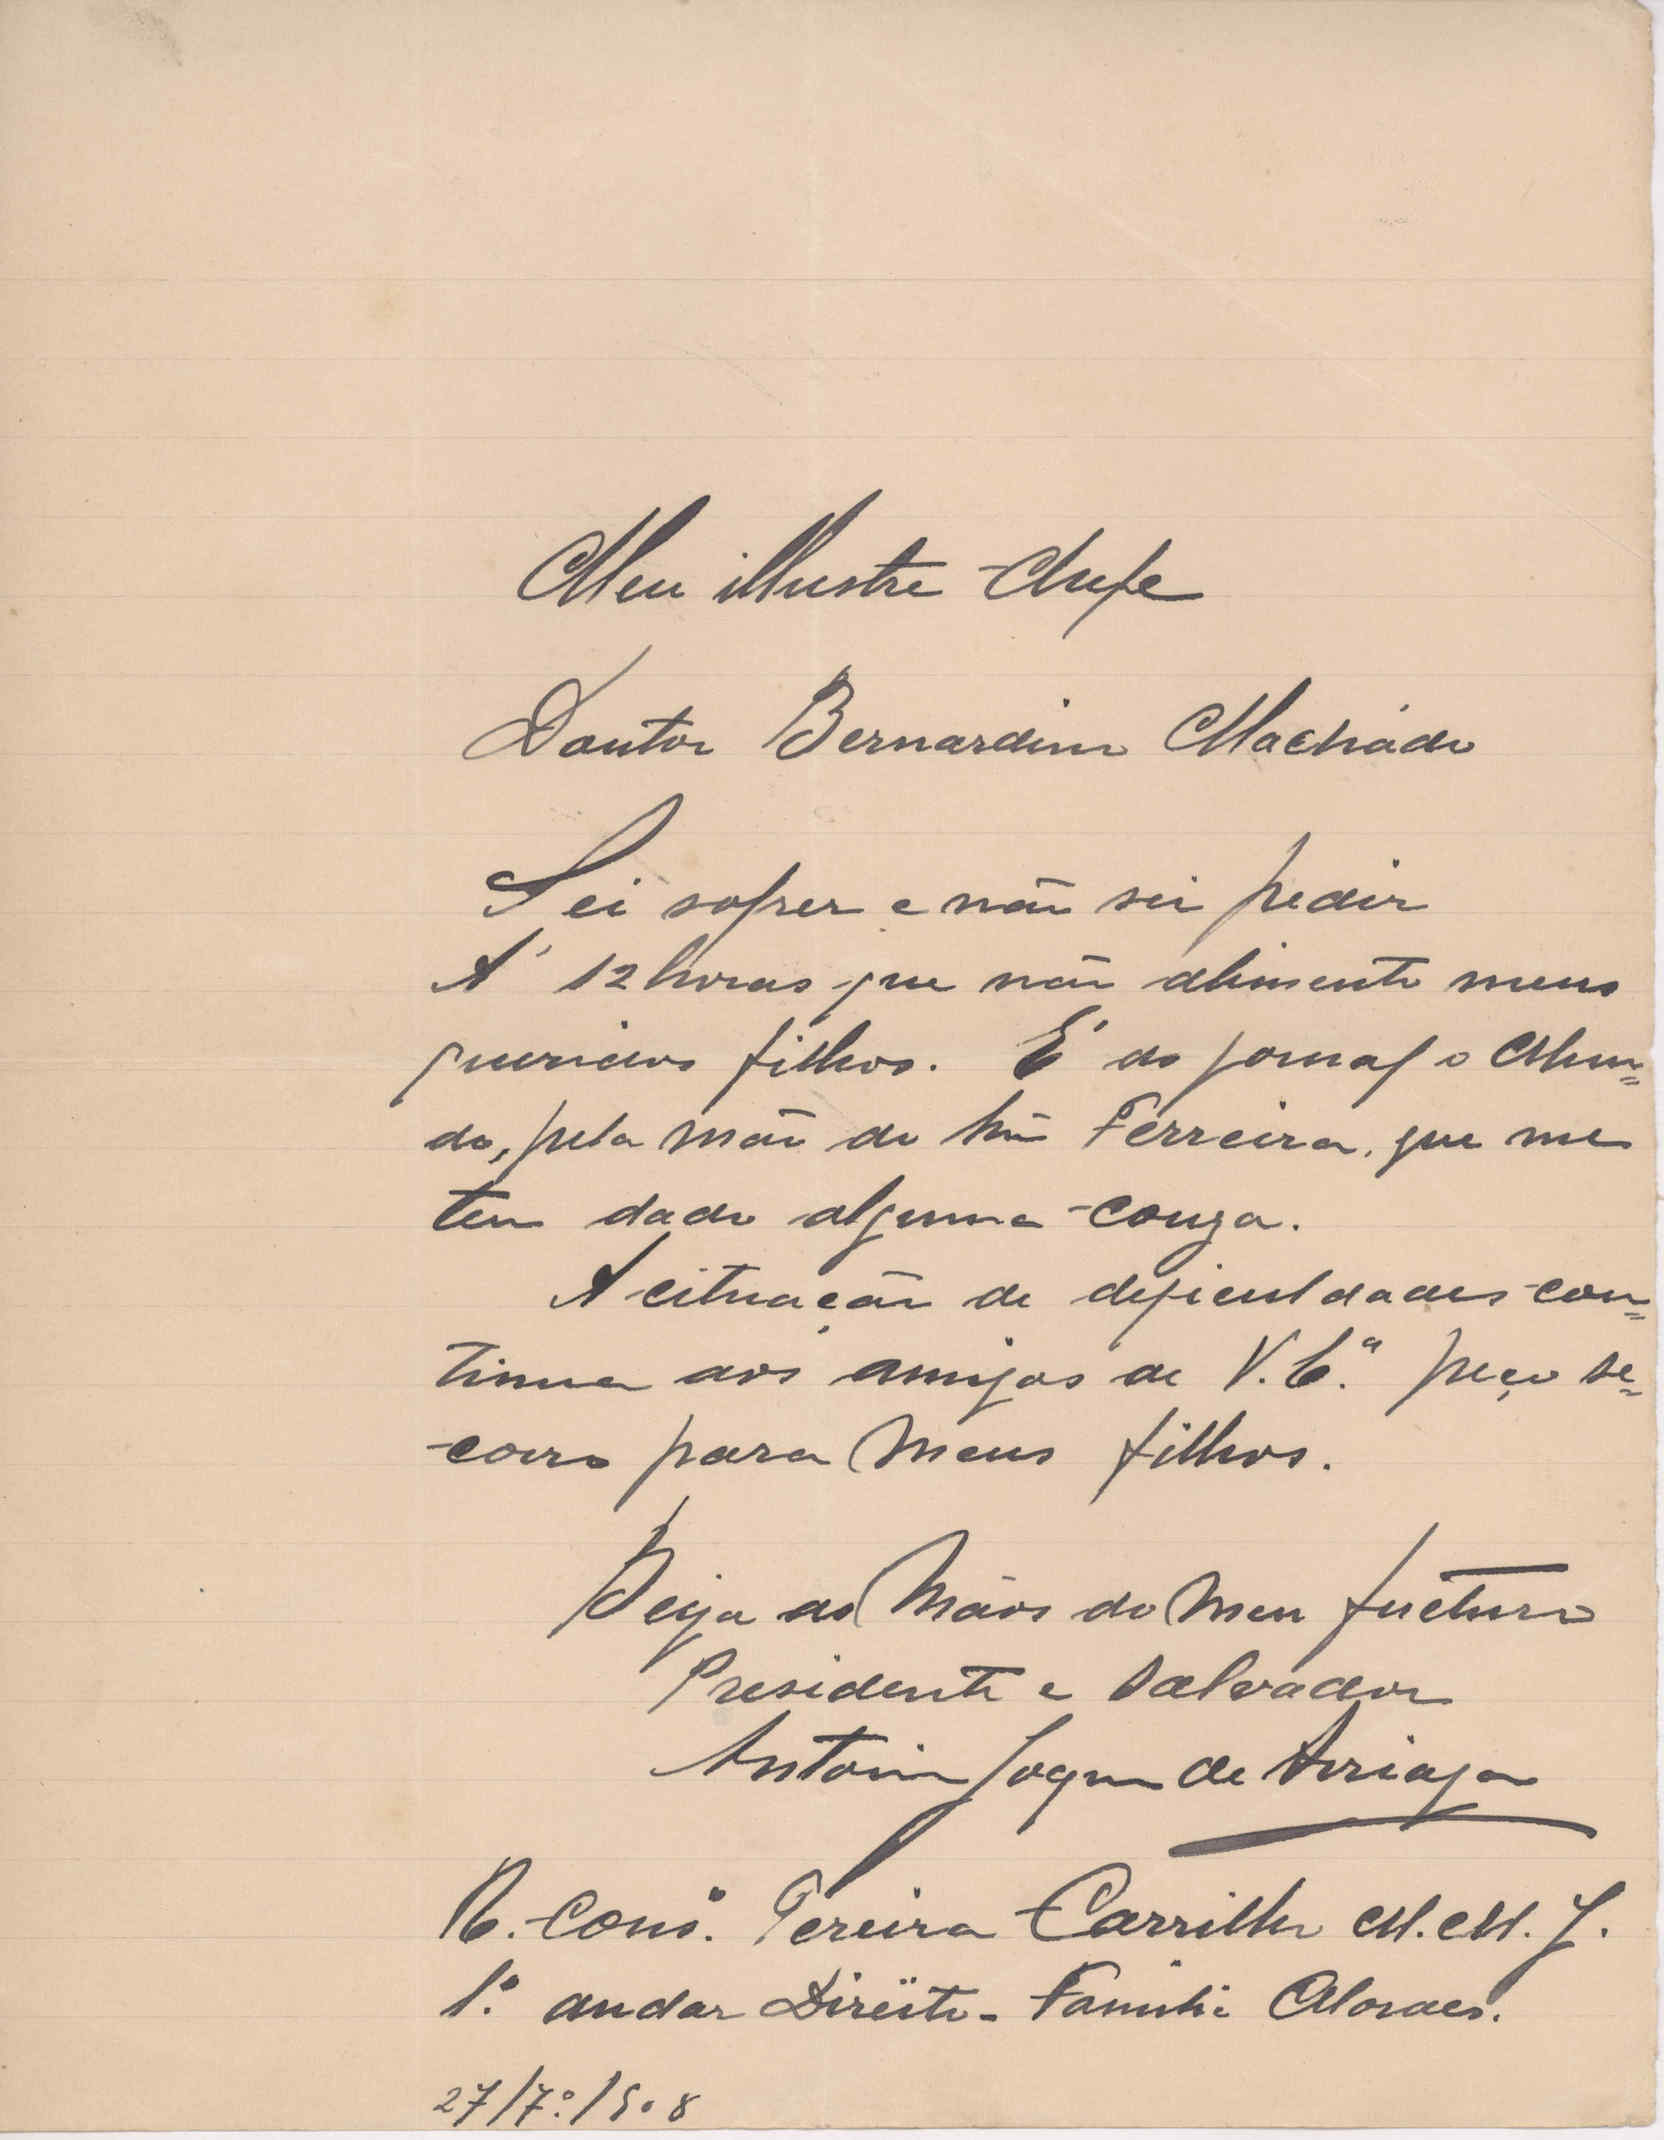 Meu illustre Chefe
Doutor Bernardino Machádo
Sei sofrer e não sei pedir
A' 12 horas que não alimento meus
queridos filhos. E' do jornal o Mun=
do, pela mão do Ferreira, que me
tem dado alguma couza.
A cituação de deficuldades con=
tinua aos amigos de V. Eª. peço so=
corro para meus filhos.
Beija as Mãos do Meu fucturo
Presidente e Salvador
Antonio Joqm de Arriaga
R. Consº. Pereira Carrilho M. M. J.
1º andar Direito - Familia Moraes.
27/7º/908